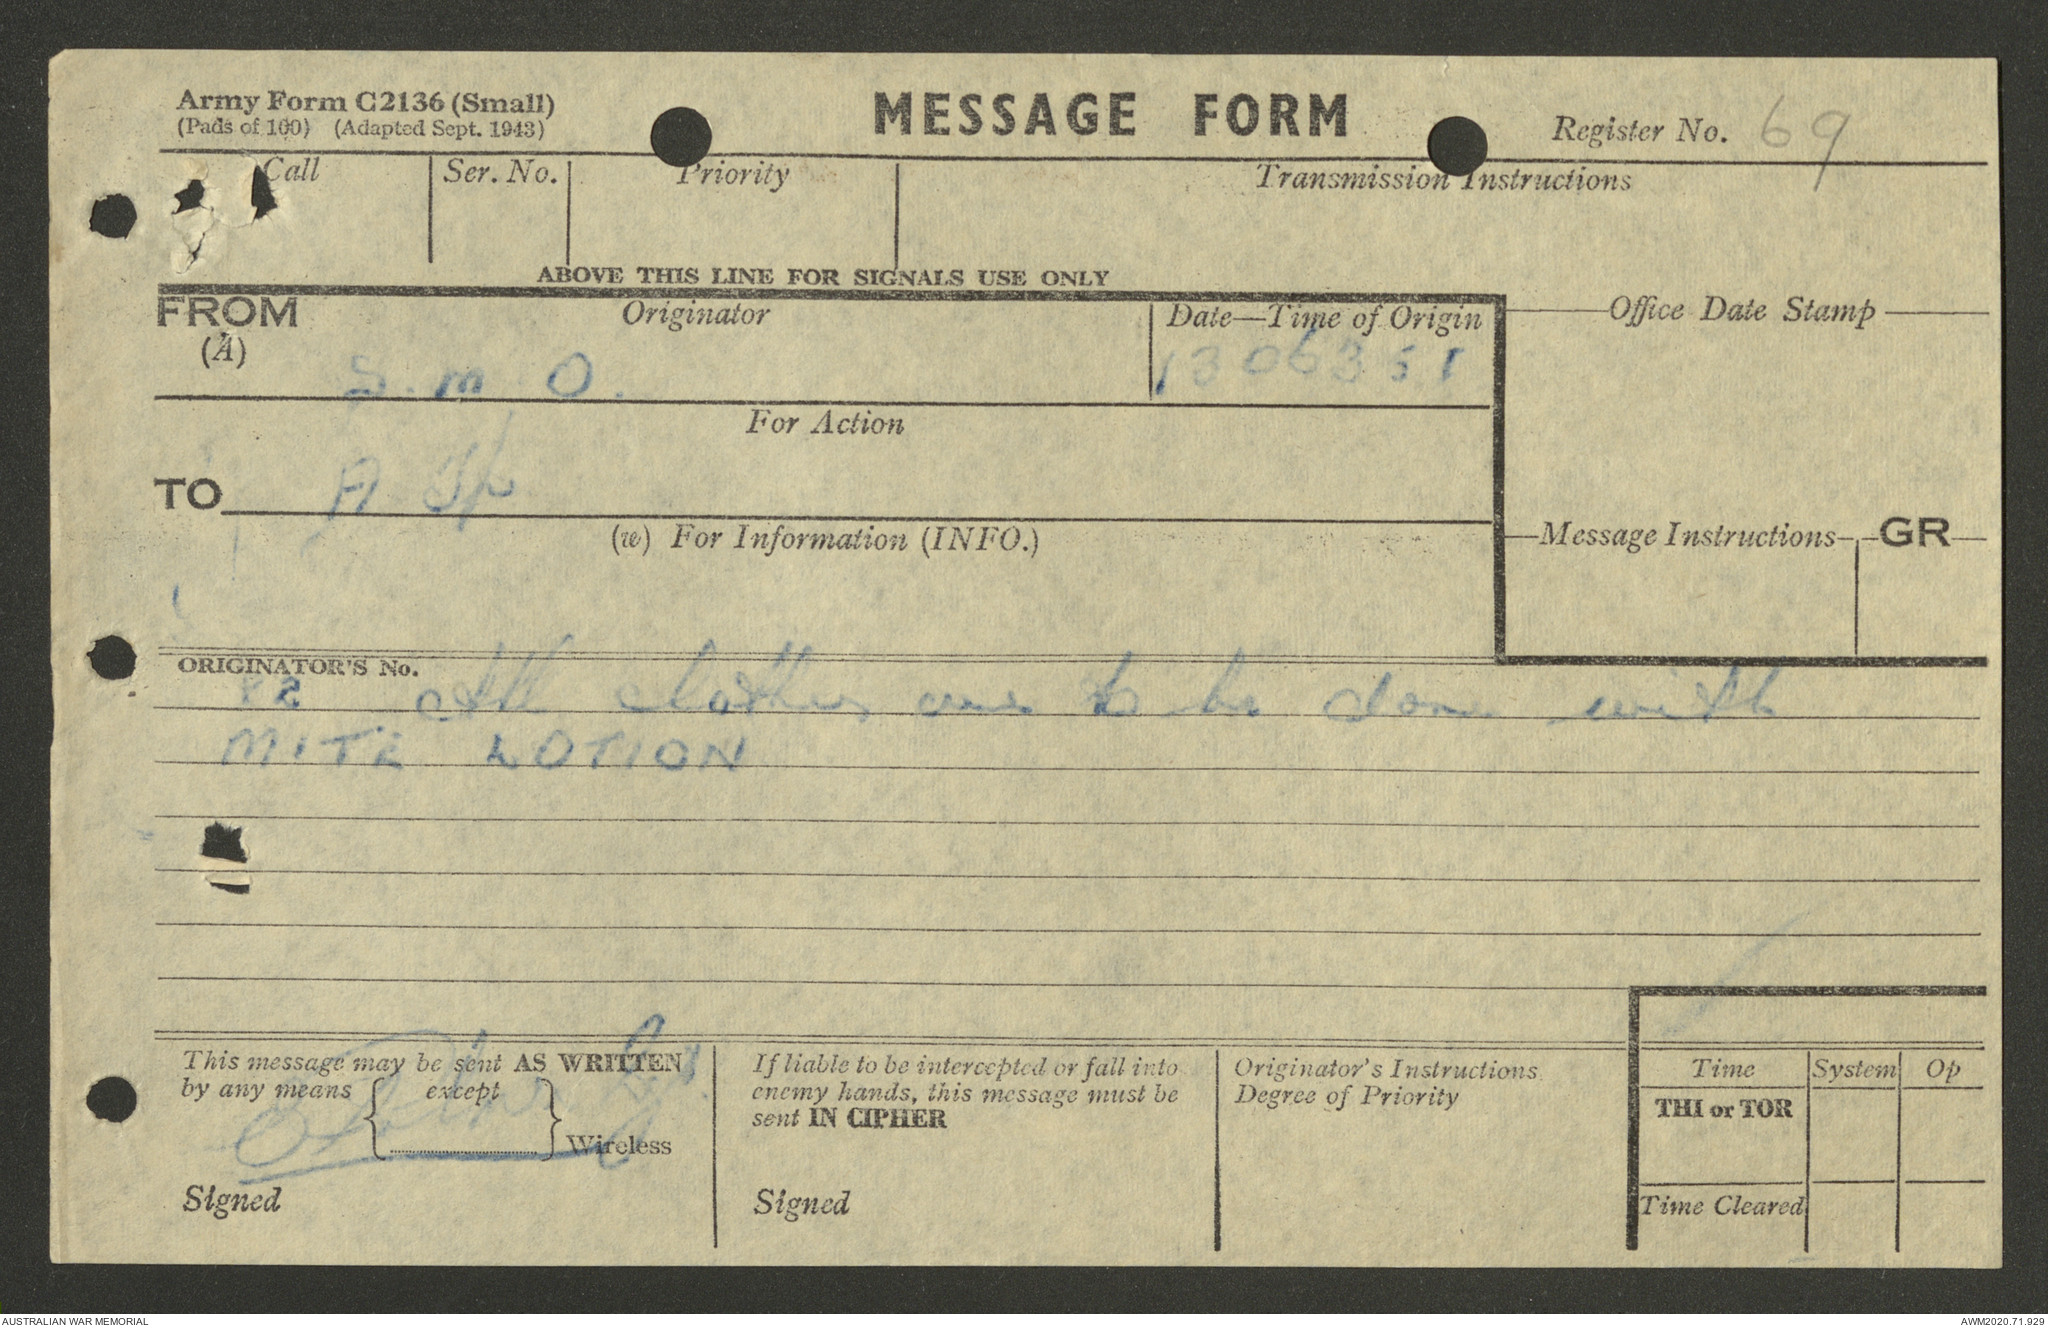 Army Form C2136 (Small)
(Pads of 100) (Adapted Sept. 1943)
MESSAGE FORM
Register No. 69
Call
Ser. No.
Priority
Transmission Instructions
ABOVE THIS LINE FOR SIGNALS USE ONLY
FROM
(A)
Originator
Date—Time of Origin
Office Date Stamp
S.M.O.
For Action
TO
A
(w) For Information (INFO.)
Message Instructions
GR
ORIGINATOR'S No.
82 All clothes are to be done with
MITE LOTION
This message may be sent AS WRITTEN
by any means { except } Wireless
Signed
If liable to be intercepted or fall into
enemy hands, this message must be
sent IN CIPHER
Signed
Originator's Instructions
Degree of Priority
Time
System
Op
THI or TOR
Time Cleared
AUSTRALIAN WAR MEMORIAL
AWM2020.71.929